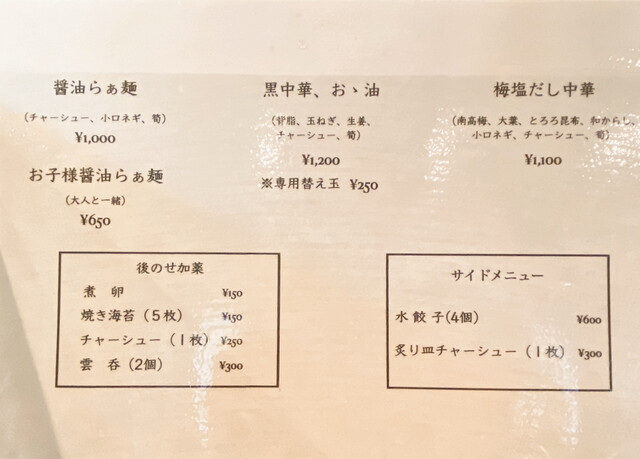 醤油らぁ麺
（チャーシュー、小口ネギ、筍）
¥1,000
お子様醤油らぁ麺
（大人と一緒）
¥650
黒中華、おゝ油
（背脂、玉ねぎ、生姜、
チャーシュー、筍）
¥1,200
※専用替え玉 ¥250
梅塩だし中華
（南高梅、大葉、とろろ昆布、和からし、
小口ネギ、チャーシュー、筍）
¥1,100
後のせ加薬
煮 卵 ¥150
焼き海苔（５枚） ¥150
チャーシュー（１枚） ¥250
雲 呑（2個） ¥300
サイドメニュー
水 餃 子(4個) ¥600
炙り皿チャーシュー（１枚） ¥300